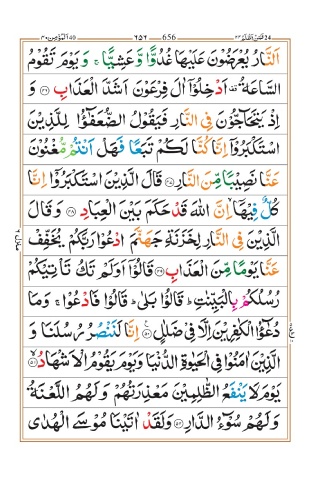 فمن اظلم ٢٤ ٦٥٦ 656 المؤمن ٤٠
اَلنَّارُ يُعْرَضُوْنَ عَلَيْهَا غُدُوًّا وَّعَشِيًّا ۚ وَيَوْمَ تَقُوْمُ
السَّاعَةُ ۫ اَدْخِلُوْٓا اٰلَ فِرْعَوْنَ اَشَدَّ الْعَذَابِ ﴿٤٦﴾ وَ
اِذْ يَتَحَآجُّوْنَ فِي النَّارِ فَيَقُوْلُ الضُّعَفٰٓؤُا لِلَّذِيْنَ
اسْتَكْبَرُوْٓا اِنَّا كُنَّا لَكُمْ تَبَعًا فَهَلْ اَنْتُمْ مُّغْنُوْنَ
عَنَّا نَصِيْبًا مِّنَ النَّارِ ﴿٤٧﴾ قَالَ الَّذِيْنَ اسْتَكْبَرُوْٓا اِنَّا
كُلٌّ فِيْهَآ اِنَّ اللّٰهَ قَدْ حَكَمَ بَيْنَ الْعِبَادِ ﴿٤٨﴾ وَقَالَ
الَّذِيْنَ فِي النَّارِ لِخَزَنَةِ جَهَنَّمَ ادْعُوْا رَبَّكُمْ يُخَفِّفْ
عَنَّا يَوْمًا مِّنَ الْعَذَابِ ﴿٤٩﴾ قَالُوْٓا اَوَلَمْ تَكُ تَاْتِيْكُمْ
رُسُلُكُمْ بِالْبَيِّنٰتِ ؕ قَالُوْا بَلٰى ؕ قَالُوْا فَادْعُوْا ۚ وَمَا
دُعٰٓؤُا الْكٰفِرِيْنَ اِلَّا فِيْ ضَلٰلٍ ﴿٥٠﴾ اِنَّا لَنَنْصُرُ رُسُلَنَا وَ
الَّذِيْنَ اٰمَنُوْا فِي الْحَيٰوةِ الدُّنْيَا وَيَوْمَ يَقُوْمُ الْاَشْهَادُ ﴿٥١﴾
يَوْمَ لَا يَنْفَعُ الظّٰلِمِيْنَ مَعْذِرَتُهُمْ وَلَهُمُ اللَّعْنَةُ
وَلَهُمْ سُوْٓءُ الدَّارِ ﴿٥٢﴾ وَلَقَدْ اٰتَيْنَا مُوْسَى الْهُدٰى